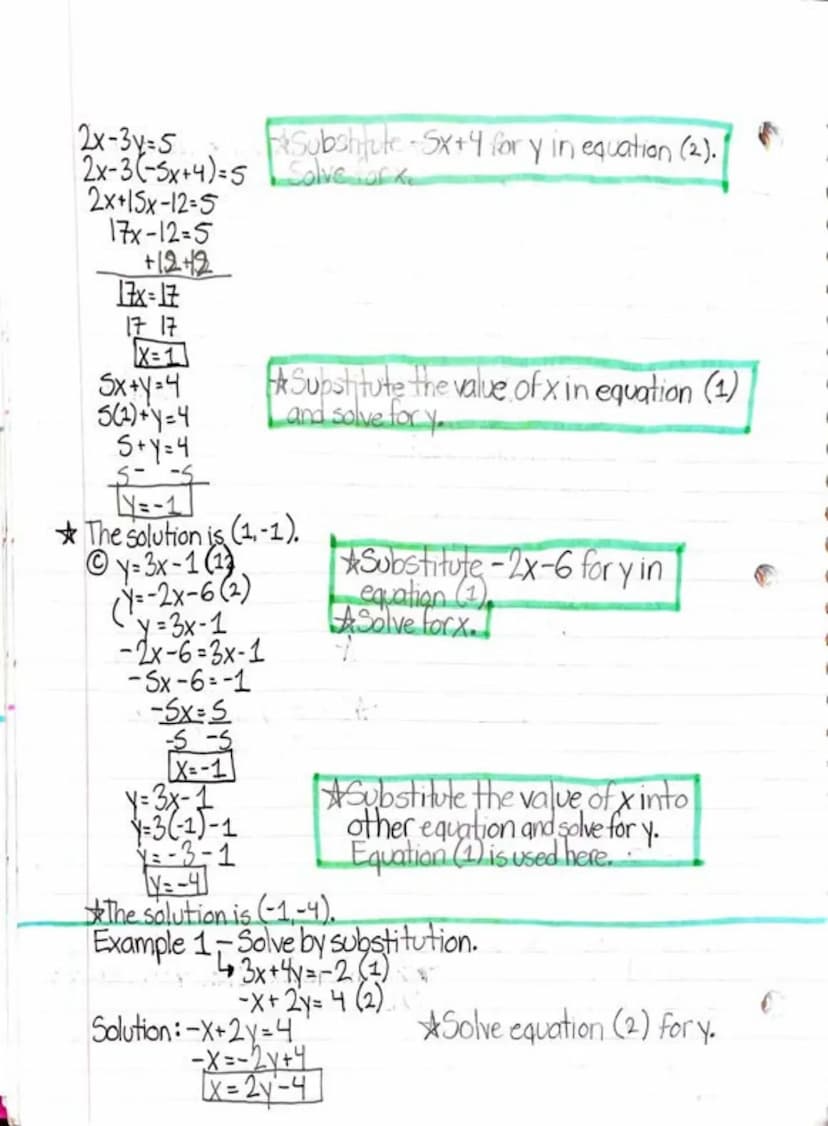 2x-3y=5
2x-3(-5x+4)=5
2x+15x-12=5
17x-12=5
+12+12
17x=17
17 17
x=1
★Substitute -5x+4 for y in equation (2).
Solve for x.
5x+y=4
5(1)+y=4
5+y=4
5- -5
y=-1
★Substitute the value of x in equation (1)
and solve for y.
★ The solution is (1,-1).
© y=3x-1 (1)
y=-2x-6 (2)
y=3x-1
-2x-6=3x-1
-5x-6=-1
-5x=5
-5 -5
x=-1
★Substitute -2x-6 for y in
equation (1).
★Solve for x.
y=3x-1
y=3(-1)-1
y=-3-1
y=-4
★Substitute the value of x into
other equation and solve for y.
Equation (1) is used here.
★The solution is (-1,-4).
Example 1-Solve by substitution.
↳3x+4y=-2 (1)
-x+2y=4 (2)
Solution: -x+2y=4
-x=-2y+4
x=2y-4
★Solve equation (2) for y.